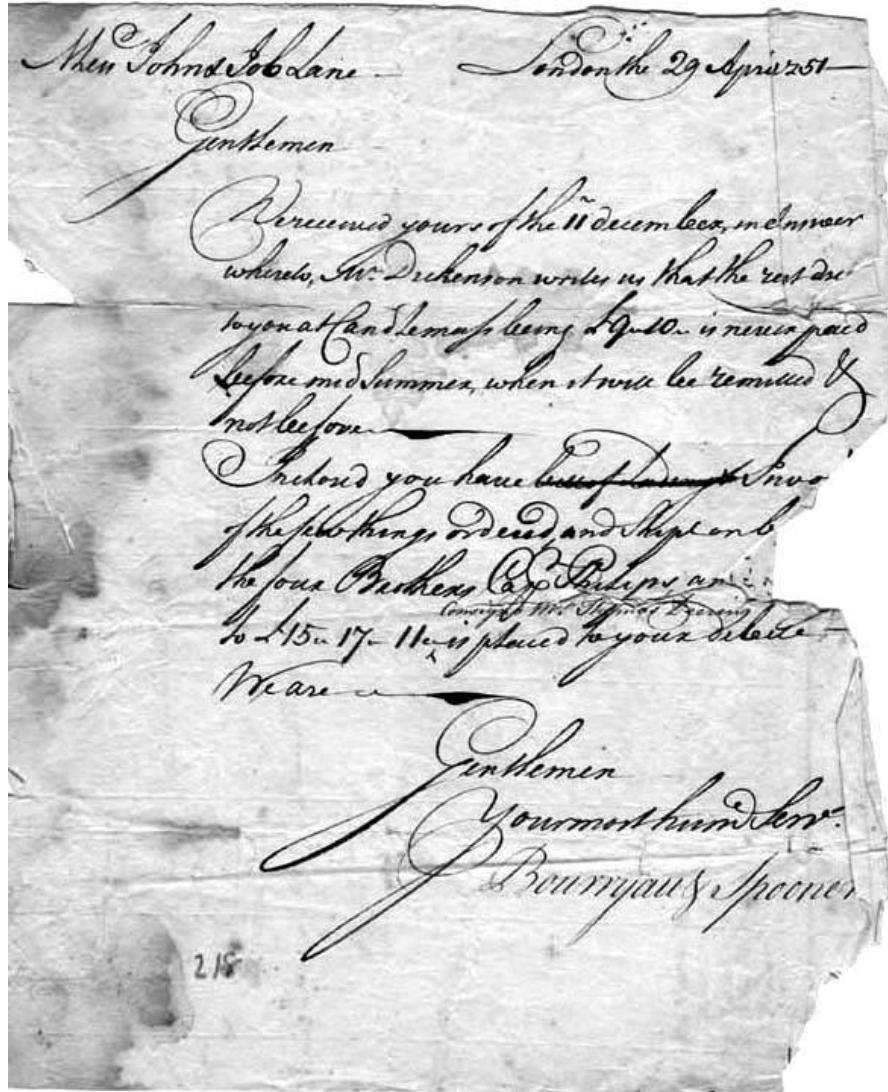 Mess John & Job Lane London the 29 April 1751
Gentlemen
We received yours of the 11th december, in answer
whereto, Mr. Dickenson writes us that the rent due
to you at Candlemass being £9 10 is never paid
before mid Summer, when it will bee remitted &
not beefore
Inclosd you have bill of Lading & Invo
of the few things ordered, and Shipt on b
the four Brothers Cap Philips am
Consign'd Mr. Thomas Deering
to £15 17 11 is placed to your debit
We are
Gentlemen
Your most hum Serv.
Bourryau & Spooner
218